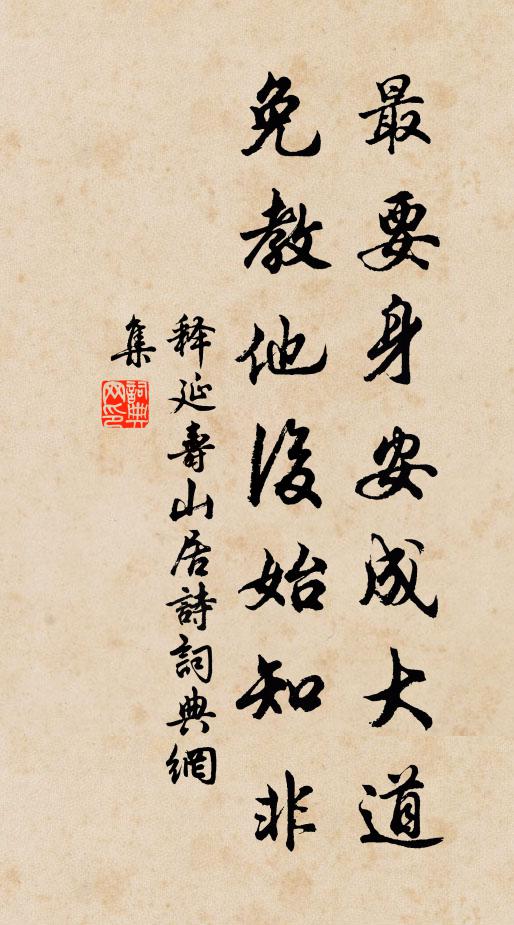 最要身安成大道
免教他後始知非
释延壽山居詩詞典網
集
詞典
网印